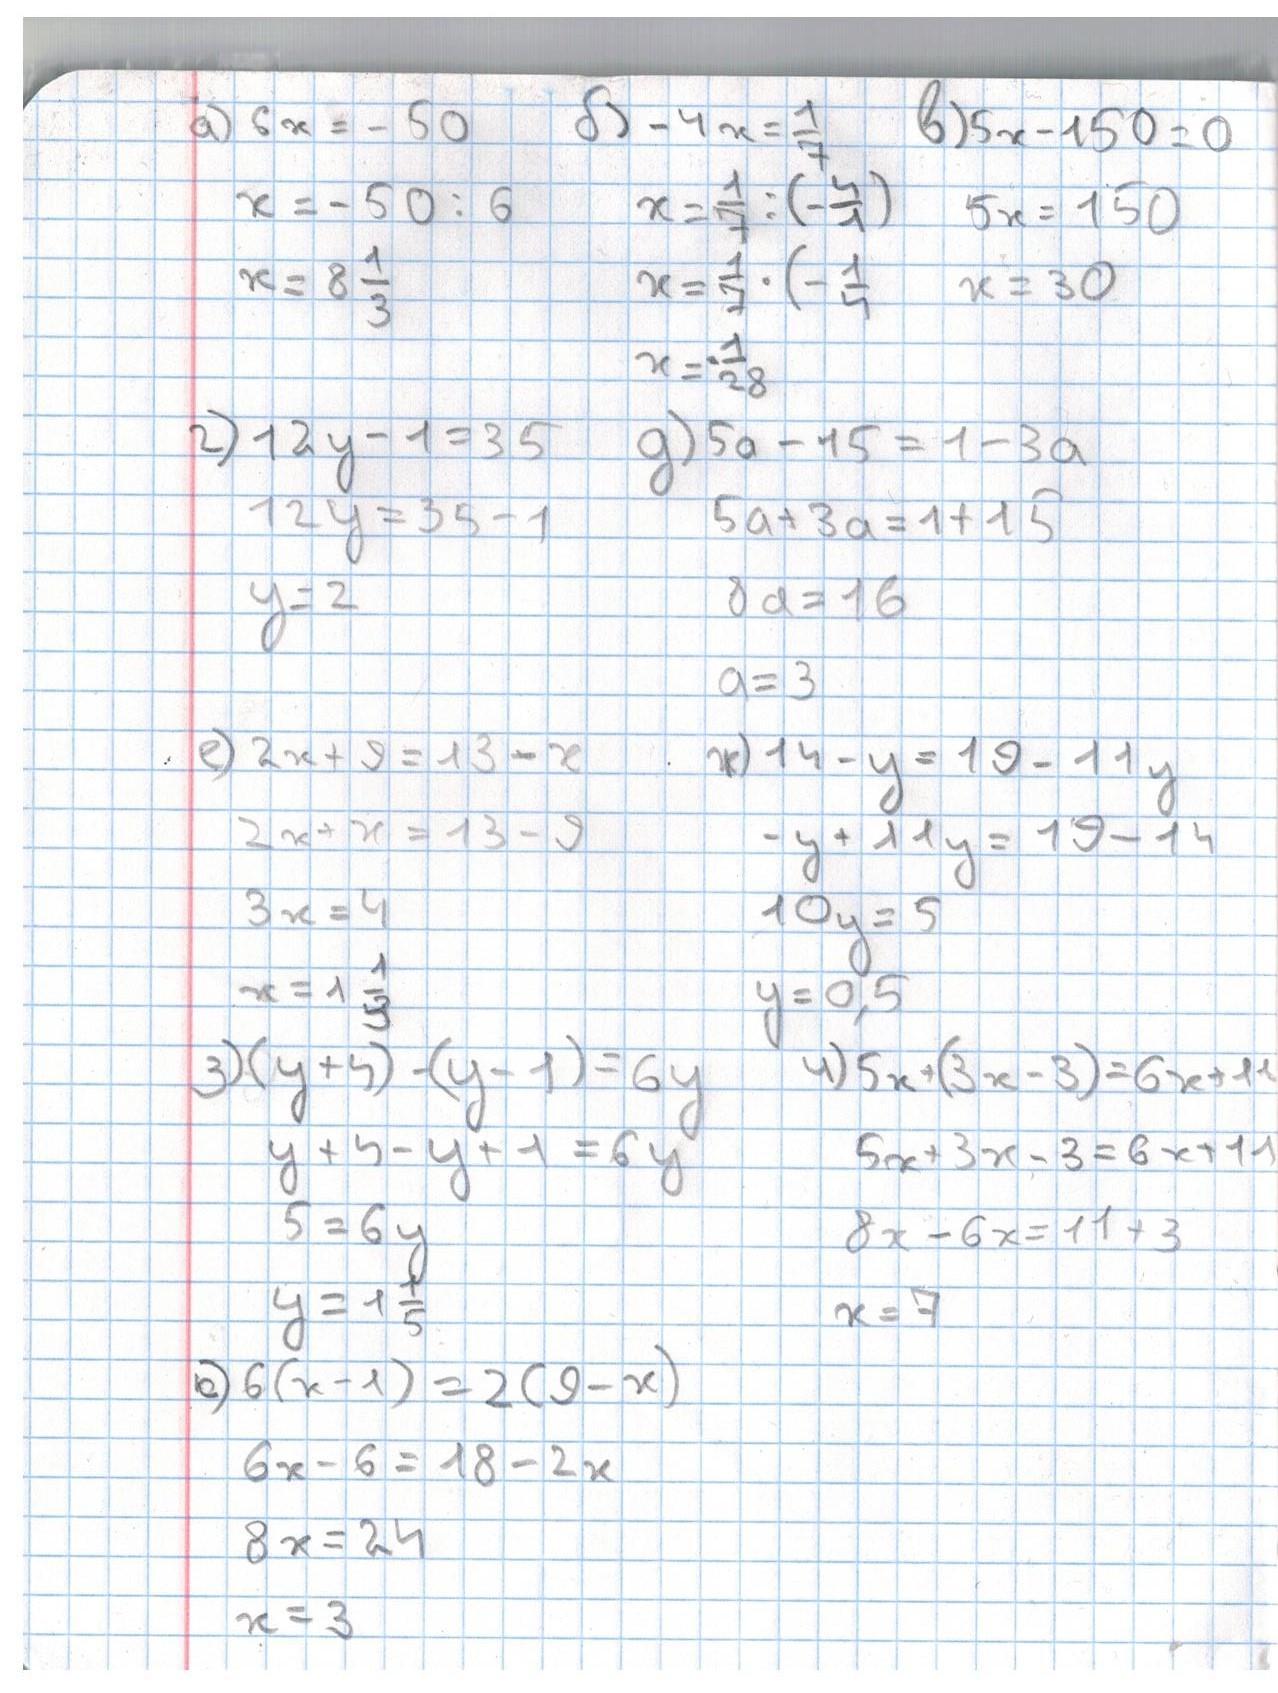 а) 6x = - 50
x = - 50 : 6
x = 8 1/3
б) - 4x = 1/7
x = 1/7 : (- 4/1)
x = 1/7 · (- 1/4
x = - 1/28
в) 5x - 150 = 0
5x = 150
x = 30
г) 12y - 1 = 35
12y = 35 - 1
y = 2
д) 5a - 15 = 1 - 3a
5a + 3a = 1 + 15
8a = 16
a = 3
е) 2x + 9 = 13 - x
2x + x = 13 - 9
3x = 4
x = 1 1/3
ж) 14 - y = 19 - 11y
- y + 11y = 19 - 14
10y = 5
y = 0,5
з) (y + 4) - (y - 1) = 6y
y + 4 - y + 1 = 6y
5 = 6y
y = 1 1/5
и) 5x + (3x - 3) = 6x + 11
5x + 3x - 3 = 6x + 11
8x - 6x = 11 + 3
x = 7
е) 6(x - 1) = 2(9 - x)
6x - 6 = 18 - 2x
8x = 24
x = 3